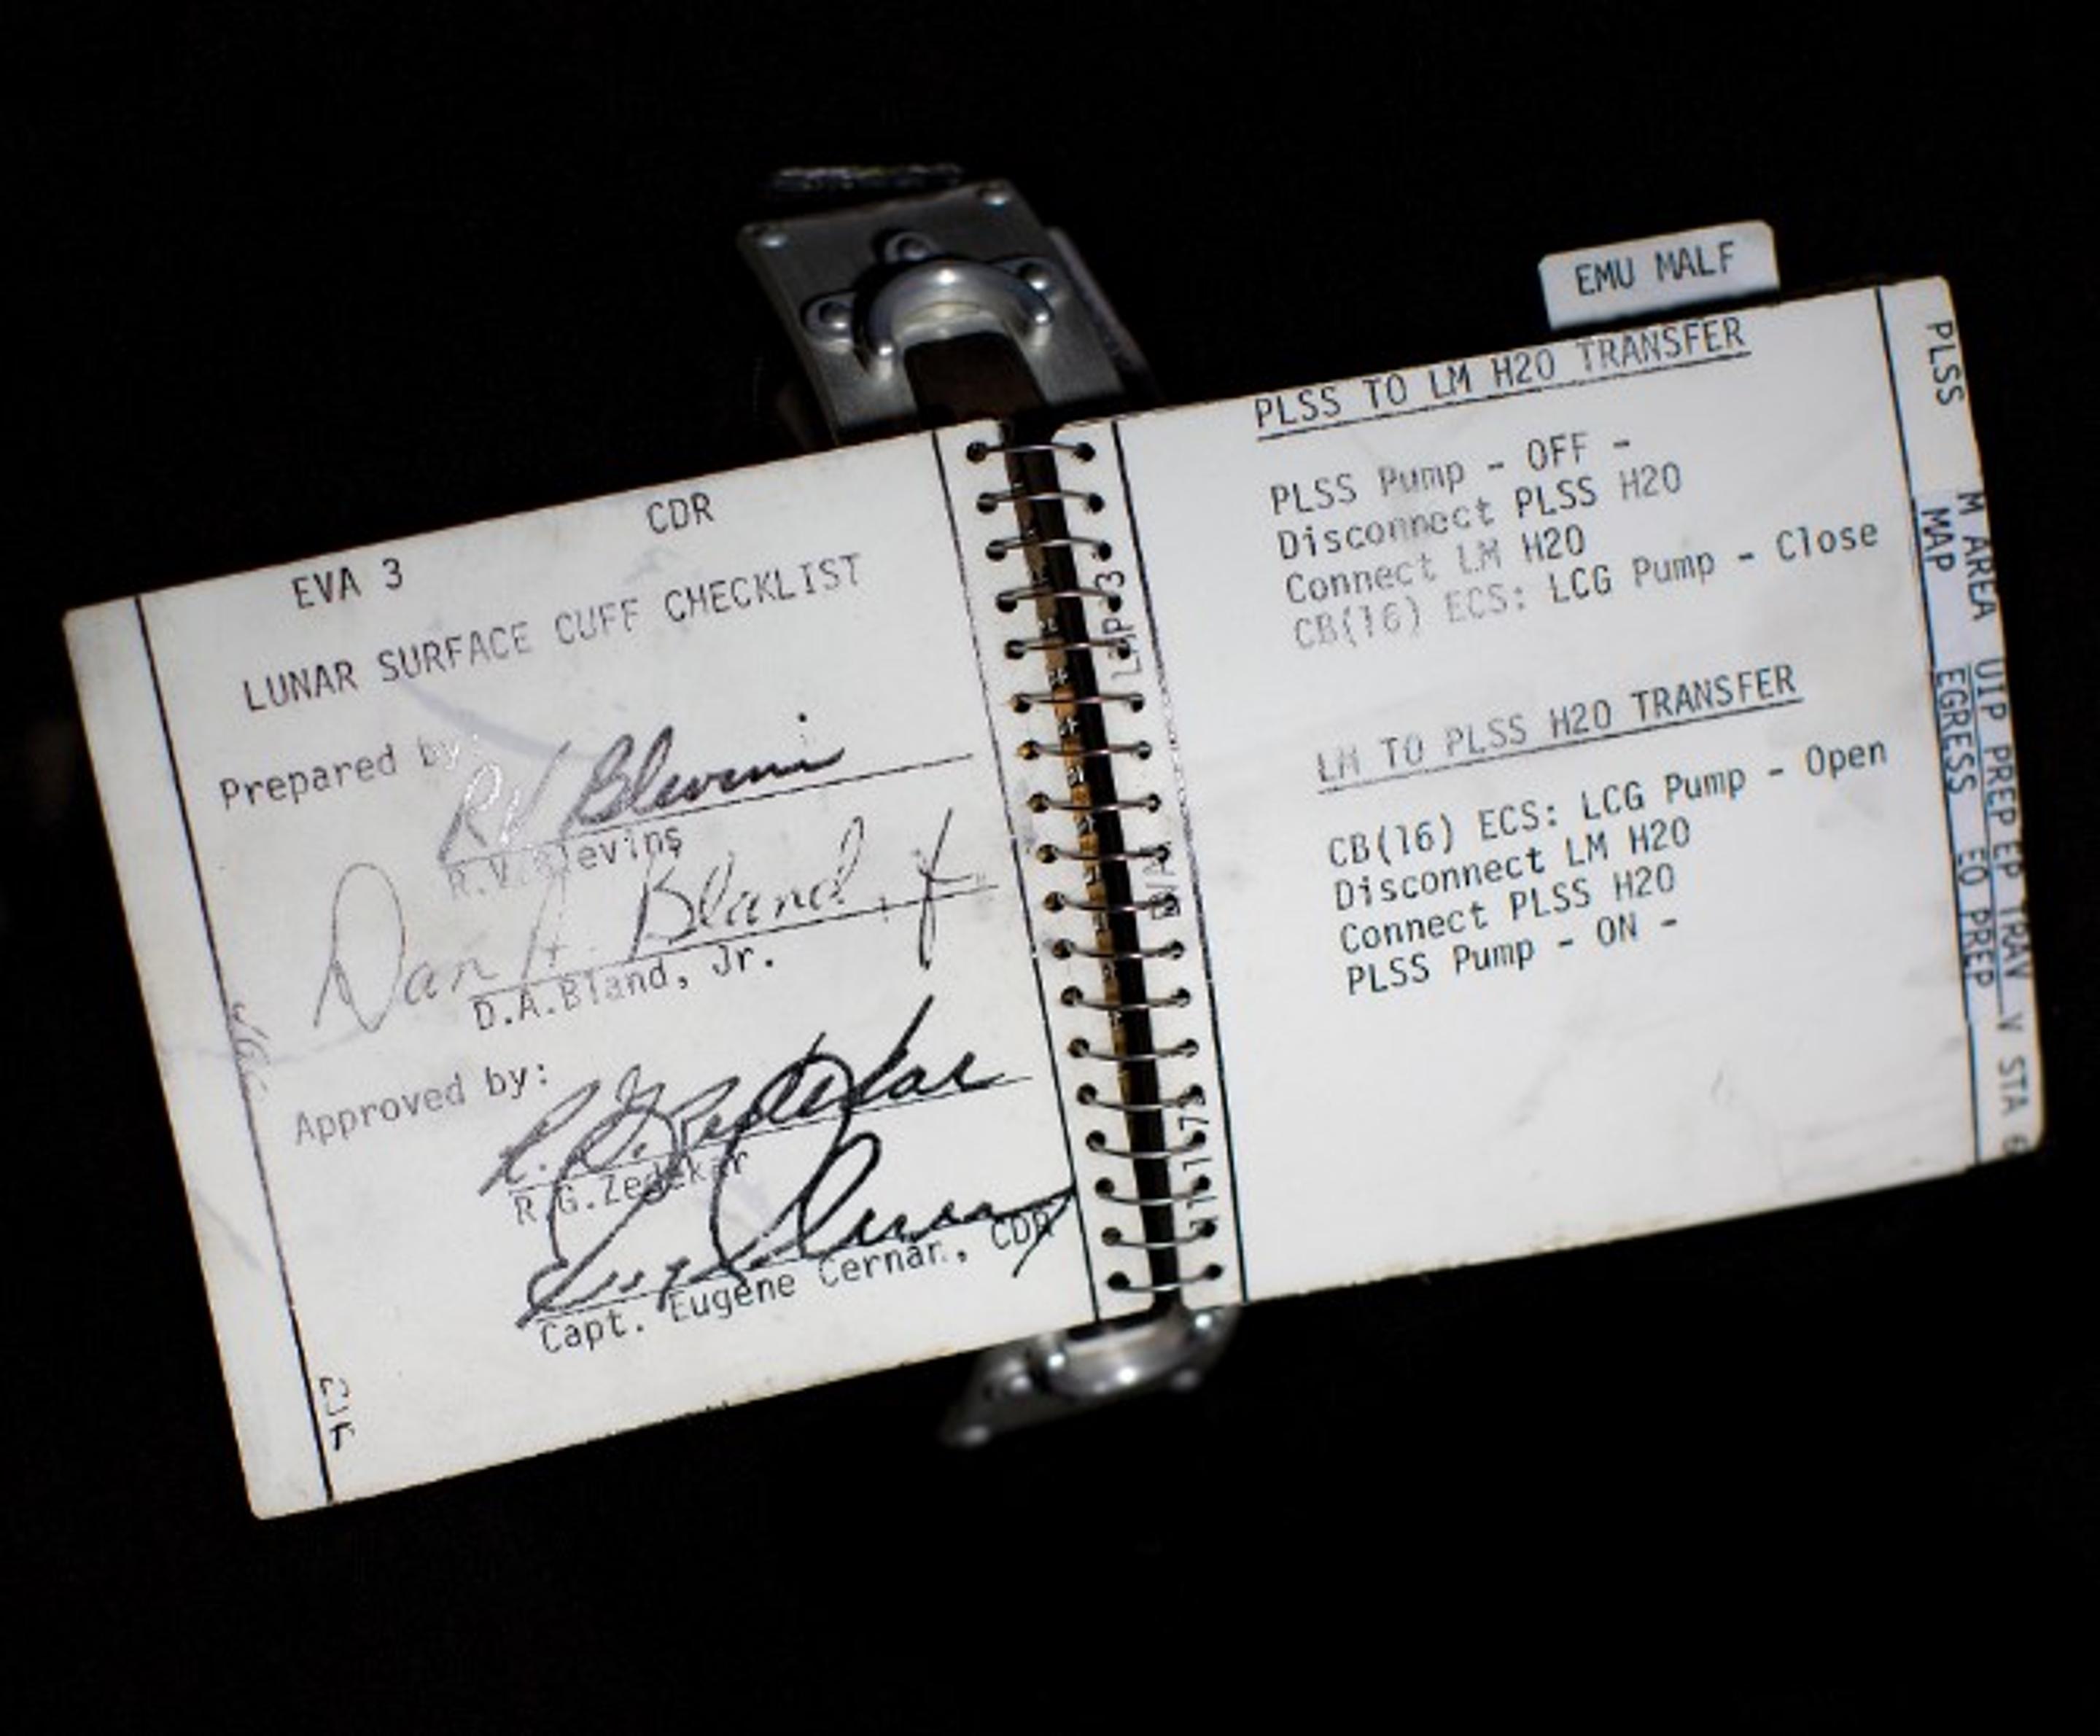 EVA 3 CDR
LUNAR SURFACE CUFF CHECKLIST
Prepared by
R.V. Blevins
Dan A. Bland, Jr
D.A.Bland, Jr.
Approved by:
R.G. Zedekar
R.G.Zedekar
Capt. Eugene Cernan, CDR
EMU MALF
PLSS TO LM H2O TRANSFER
PLSS Pump - OFF -
Disconnect PLSS H2O
Connect LM H2O
CB(16) ECS: LCG Pump - Close
LM TO PLSS H2O TRANSFER
CB(16) ECS: LCG Pump - Open
Disconnect LM H2O
Connect PLSS H2O
PLSS Pump - ON -
PLSS
MAP
AREA
EGRESS
EQ PREP
PREP
TRAV
STA 6